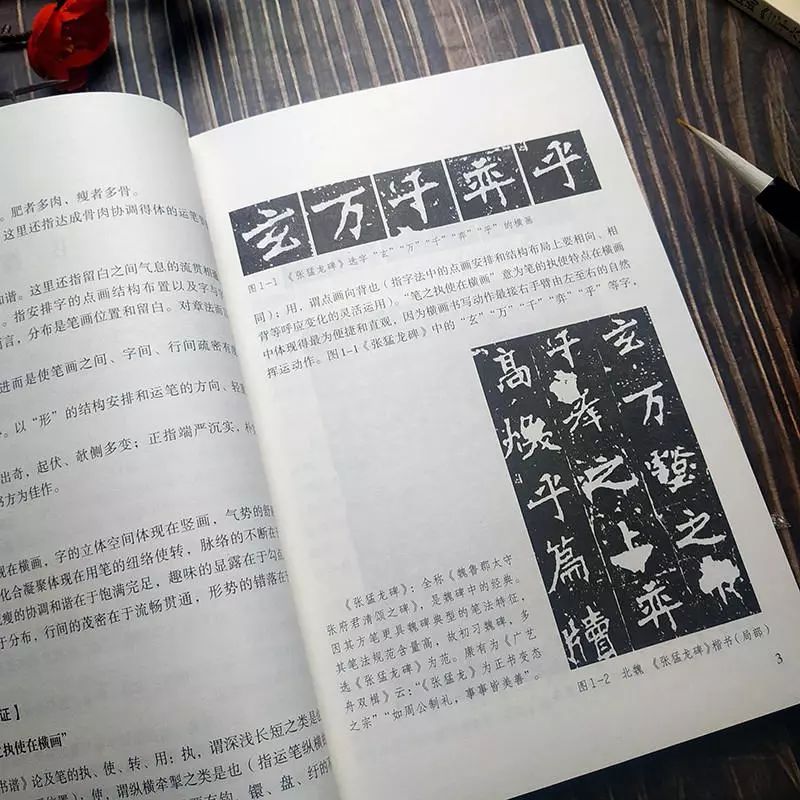 。肥者多肉，瘦者多骨。
这里还指达成骨肉协调得体的运笔
和谐。这里还指留白之间气息的流贯相
。指安排字的点画结构布置以及字与
言，分布是笔画位置和留白。对章法而
进而是使笔画之间、字间、行间疏密有
。以“形”的结构安排和运笔的方向、轻
出奇，起伏、欹侧多变；正指端严沉实，朴
方为佳作。
现在横画，字的立体空间体现在竖画，气势的舒
化合凝聚体现在用笔的纽络使转，脉络的不断在
瘦的协调和谐在于饱满完足，趣味的显露在于勾点
于分布，行间的茂密在于流畅贯通，形势的错落在
证】
之执使在横画”
书谱》论及笔的执、使、转、用：执，谓深浅长短之类是
；使，谓纵横牵掣之类是也（指运笔纵横
在钩、镮、盘、纡的
玄万千弈乎
图1-1 《张猛龙碑》选字“玄”“万”“千”“弈”“乎”的横画
同）；用，谓点画向背也（指字法中的点画安排和结构布局上要相向、相
背等呼应变化的灵活运用）。“笔之执使在横画”意为笔的执使特点在横画
中体现得最为便捷和直观，因为横画书写动作最接右手臂由左至右的自然
挥运动作。图1-1《张猛龙碑》中的“玄”“万”“千”“弈”“乎”等字，
玄万壑之
弈
之上
高焕乎篇牍
《张猛龙碑》：全称《魏鲁郡太守
张府君清颂之碑》，是魏碑中的经典。
因其方笔更具魏碑典型的笔法特征，
其笔法规范含量高，故初习魏碑，多
选《张猛龙碑》为范。康有为《广艺
舟双楫》云：“《张猛龙》为正书变态
之宗”“如周公制礼，事事皆美善”。
图1-2 北魏 《张猛龙碑》楷书（局部）
3